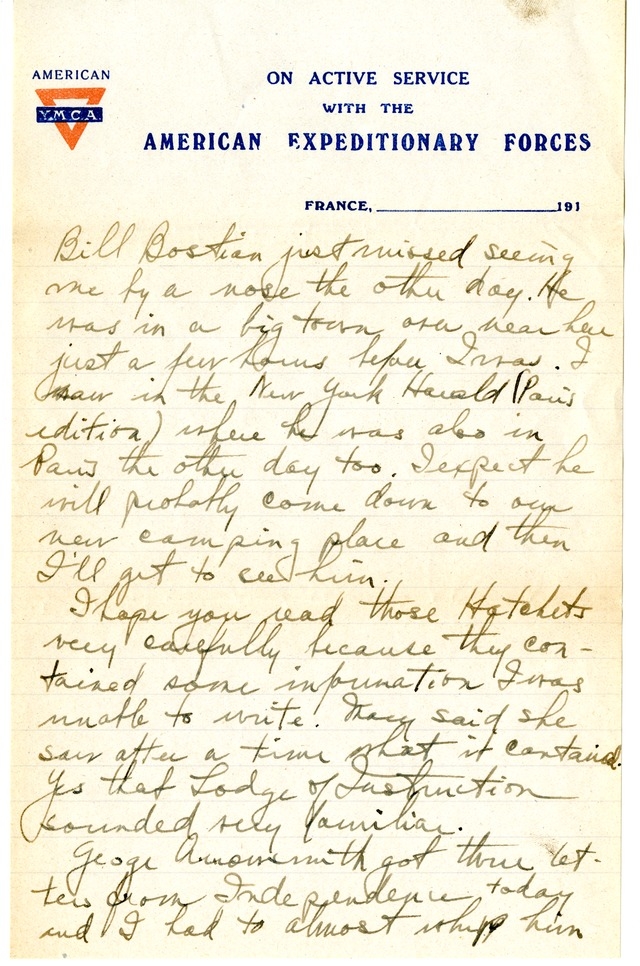 AMERICAN
YMCA
ON ACTIVE SERVICE
WITH THE
AMERICAN EXPEDITIONARY FORCES
FRANCE, 191
Bill Bostian just missed seeing
me by a nose the other day. He
was in a big town over near here
just a few hours before I was. I
saw in the New York Herald (Paris
edition) where he was also in
Paris the other day too. I expect he
will probably come down to our
new camping place and then
I'll get to see him.
I hope you read those Hatchets
very carefully because they con-
tained some information I was
unable to write. Mary said she
saw after a time what it contained.
Yes that Lodge of Instruction
sounded very familiar.
George Arrowsmith got three let-
ters from Independence today
and I had to almost whip him